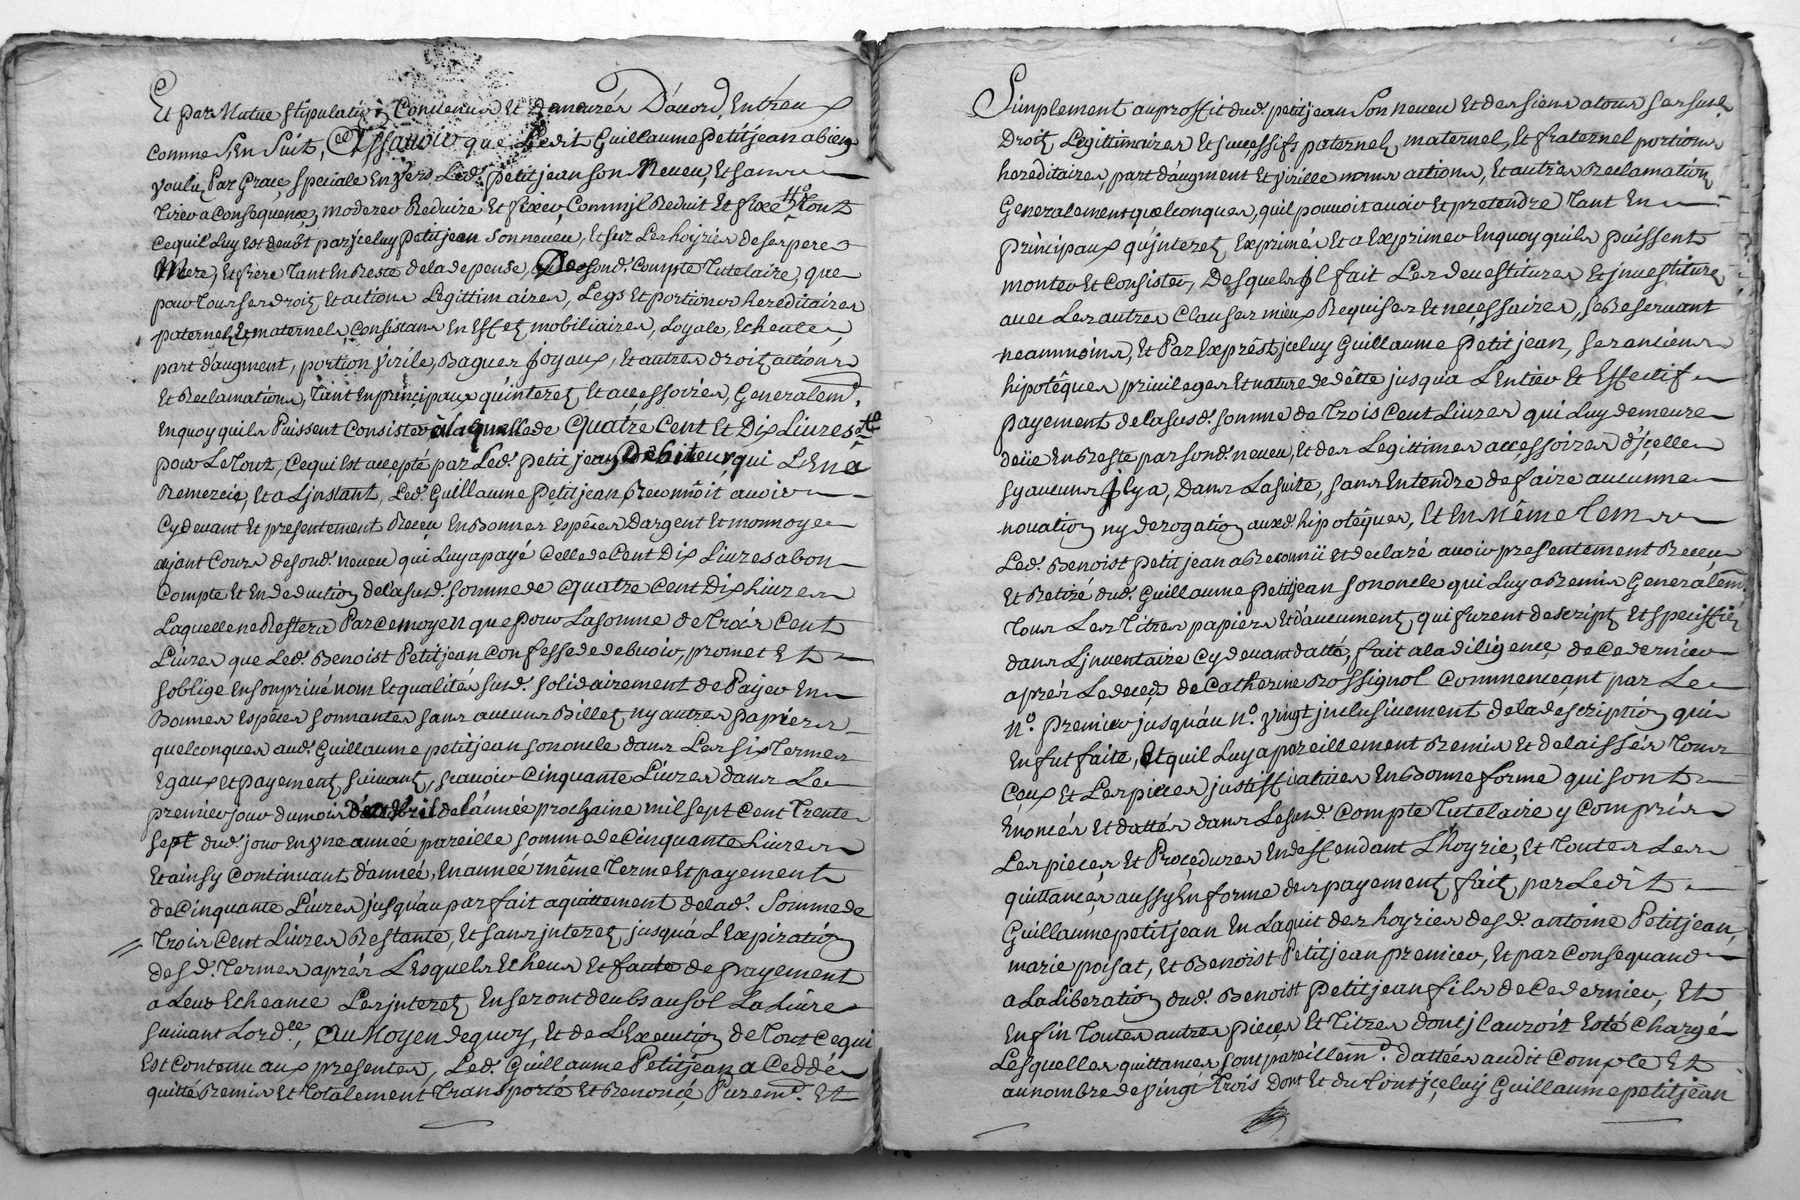 Et par Mutue stipulation Convenus Et demeurés D'acord, Entreux
comme S'En Suit, Assavoir que Ledit Guillaume Petitjean a bien
voulu, Par Grace speciale Envers Led. petitjean son Neveu, Et sans
tirer a Consequence, moderer Reduire Et fixer, Comm'jl Reduit Et fixe tout
Cequ'il Luy Est deubt par jceluy Petitjean son neveu, Et sur Les hoyries de ses pere
Mere, Et frere tant En Reste de la depense, De sond. Compte tutelaire, que
pour tous ses droits Et actions Legittimaires, Legs Et portions hereditaires
paternels, Et maternels, Consistans En Effets mobiliaires, Loyale, Echeute,
part d'augment, portion virile, Bagues joyaux, Et autres droits actions
Et Reclamations, tant En principaux qu'interets Et accessoires, Generalemt.
En quoy quils Puissent Consister à laquelle de Quatre Cent Et Dix Livres
pour Le tout, Ce qui Est accepté par Led. petitjean Debiteur, qui L'En a
Remercié, Et a Ljnstant, Led. Guillaume petitjean Reconnoit avoir
Cy devant Et presentement Receu En Bonnes Espêces d'argent Et monnoye
ayant Cours de sond. neveu qui Luy a payé Celle de Cent Dix Livres a bon
Compte Et En deduction de la susd. somme de Quatre Cent Dix Livres
Laquelle ne Restera Par ce moyen que pour La somme de trois Cent
Livres que Led. Benoist Petitjean Confesse de debvoir, promet Et
s'oblige En son privé nom Et qualités susd. solidairement de Païer En
Bonnes Espêces sonnantes sans aucuns Billets ny autres papiers
quelconques aud. Guillaume petitjean son oncle dans Les six termes
Egaux Et payements suivants, scavoir Cinquante Livres dans Le
premier jour du mois d'avril de l'année prochaine mil sept Cent trente
sept dud. jour En vne année pareille somme de Cinquante Livres
Et ainsy Continuant d'année, En année même terme Et payement
de Cinquante Livres jusqu'au parfait aquittement de lad. Somme de
trois Cent Livres Restante, Et sans jnterets jusqu'à L'Expiration
desd. termes aprés Lesquels Echeus Et faute de payement
a Leur Echeance Les jnterets En seront deubs au sol La Livre
suivant L'ordce, Au Moyen dequoy, Et de L'Execution de tout Ce qui
Est Contenu aux presentes, Led. Guillaume Petitjean a Ceddé
quitté Remis Et totalement transporté Et Renoncé, Puremt. Et
Simplement au proffit dud. petitjean Son neveu Et des siens a tous ses susd.
Droits Legittimaires Et successifs paternels, maternels, Et fraternel portions
hereditaires, part d'augment Et virille noms actions, Et autres Reclamations
Generalement quelconques, quil pouvoit avoir Et pretendre tant En
principaux qu'jnterets Exprimés Et a Exprimer En quoy quils puissent
monter Et Consister, Desquels Jl fait Les devestitures Et jnvestitures
avec Les autres Clauses mieux Requises Et necessaires, se Reservant
neammoins, Et Par Exprés jceluy Guillaume Petitjean, ses anciens
hipotêques privileges Et nature de dêtte jusqu'a L'Entier Et Effectif
payement de la susd. somme de trois Cent Livres qui Luy demeure
deüe En Reste par sond. neveu, Et des Legittimes accessoires d'jcelle
sy aucuns Jl y a, Dans La suite, sans Entendre de faire aucunne
novation ny derogation auxd. hipotêques, Et En Même tems
Led. Benoist petitjean a Reconnü Et declaré avoir presentement Receu
Et Retiré dud. Guillaume Petitjean son oncle qui Luy a Remis Generalemt.
tous Les titres papiers Et d'aucuments, qui furent descripts Et speciffiés
dans Ljnventaire Cy devant datté, fait a la diligence de Ce dernier
aprés Le deceds de Catherine Rossignol Commenceant par Le
No. Premier jusqu'au No. vingt jnclusivement de la description qui
En fut faite, Et quil Luy a pareillement Remis Et delaissés tous
Ceux Et Les pieces justifficatives En Bonne forme qui sont
Enoncés Et dattés dans Le susd. Compte tutelaire y Compris
Les pieces Et Procedures En deffendant L'hoyrie, Et toutes Les
quittances aussy En forme des payements faits par Ledit
Guillaume petitjean En Laquit des hoyries desd. antoine Petitjean,
marie poisat, Et Benoist Petitjean premier, Et par Consequand
a La Liberation dud. Benoist Petitjean fils de Ce dernier, Et
Enfin toutes autres pieces Et titres dont jl auroit Esté Chargé
Lesquelles quittances sont pareillemt. dattées audit Compte Et
au nombre de vingt trois Dont Et du tout jceluy Guillaume petitjean